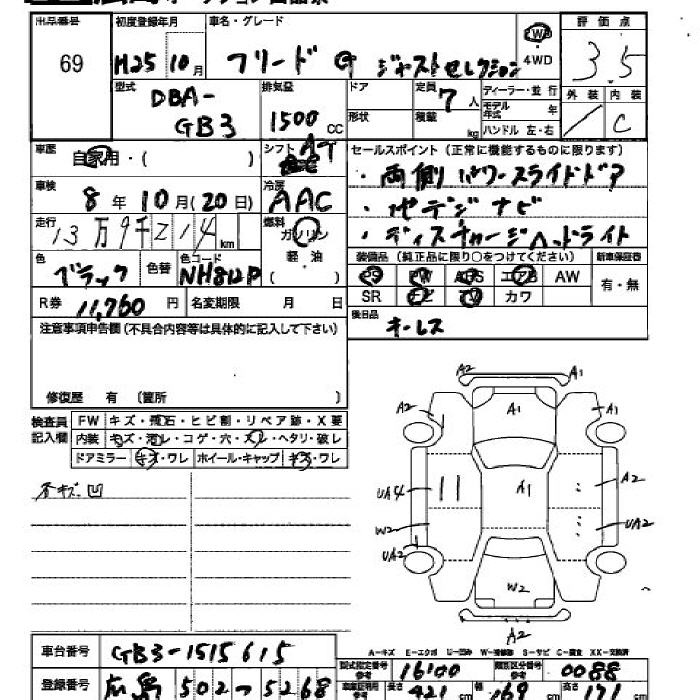 出品番号 初度登録年月 車名・グレード 評価点
69 H25年10月 フリード G ジャストセレクション 2WD 4WD 3.5
型式 排気量 ドア 定員 ディーラー・並行 外装 内装
DBA-GB3 1500cc 7人 モデル年式 年 / C
形状 積載 kg ハンドル 左・右
車歴 自家用・( ) シフト AT セールスポイント(正常に機能するものに限ります)
車検 8年10月(20日) 冷房 AAC ・両側パワースライドドア
走行 13万9千214km 燃料 ガソリン ・地デジナビ
軽油 ( ) ・ディスチャージヘッドライト
色 ブラック 色替 色コード NH812P 装備品(純正品に限り○をつけてください) 新車保証書
PS PW ABS エアB AW 有・無
R券 11,760円 名変期限 月 日 SR ナビ TV カワ
注意事項申告欄(不具合内容等は具体的に記入して下さい) 後日品 オーレス
修復歴 有 〔箇所 〕
検査員記入欄 FW キズ・飛石・ヒビ割・リペア跡・X要
内装 キズ・汚レ・コゲ・穴・スレ・ヘタリ・破レ
ドアミラー キズ・ワレ ホイール・キャップ キズ・ワレ
各キズ、凹
A2 A1
A2 A1 A1
UA4 A1 A2
W2 UA2
UA2
W2
A2
A-キズ E-エクボ U-凹み W-補修跡 S-サビ C-腐食 XX-交換済
車台番号 GB3-1515615 型式指定番号 参考 16100 類別区分番号 参考 0088
登録番号 広島 502 - 5268 車庫証明用 参考 長さ 421cm 幅 169cm 高さ 171cm